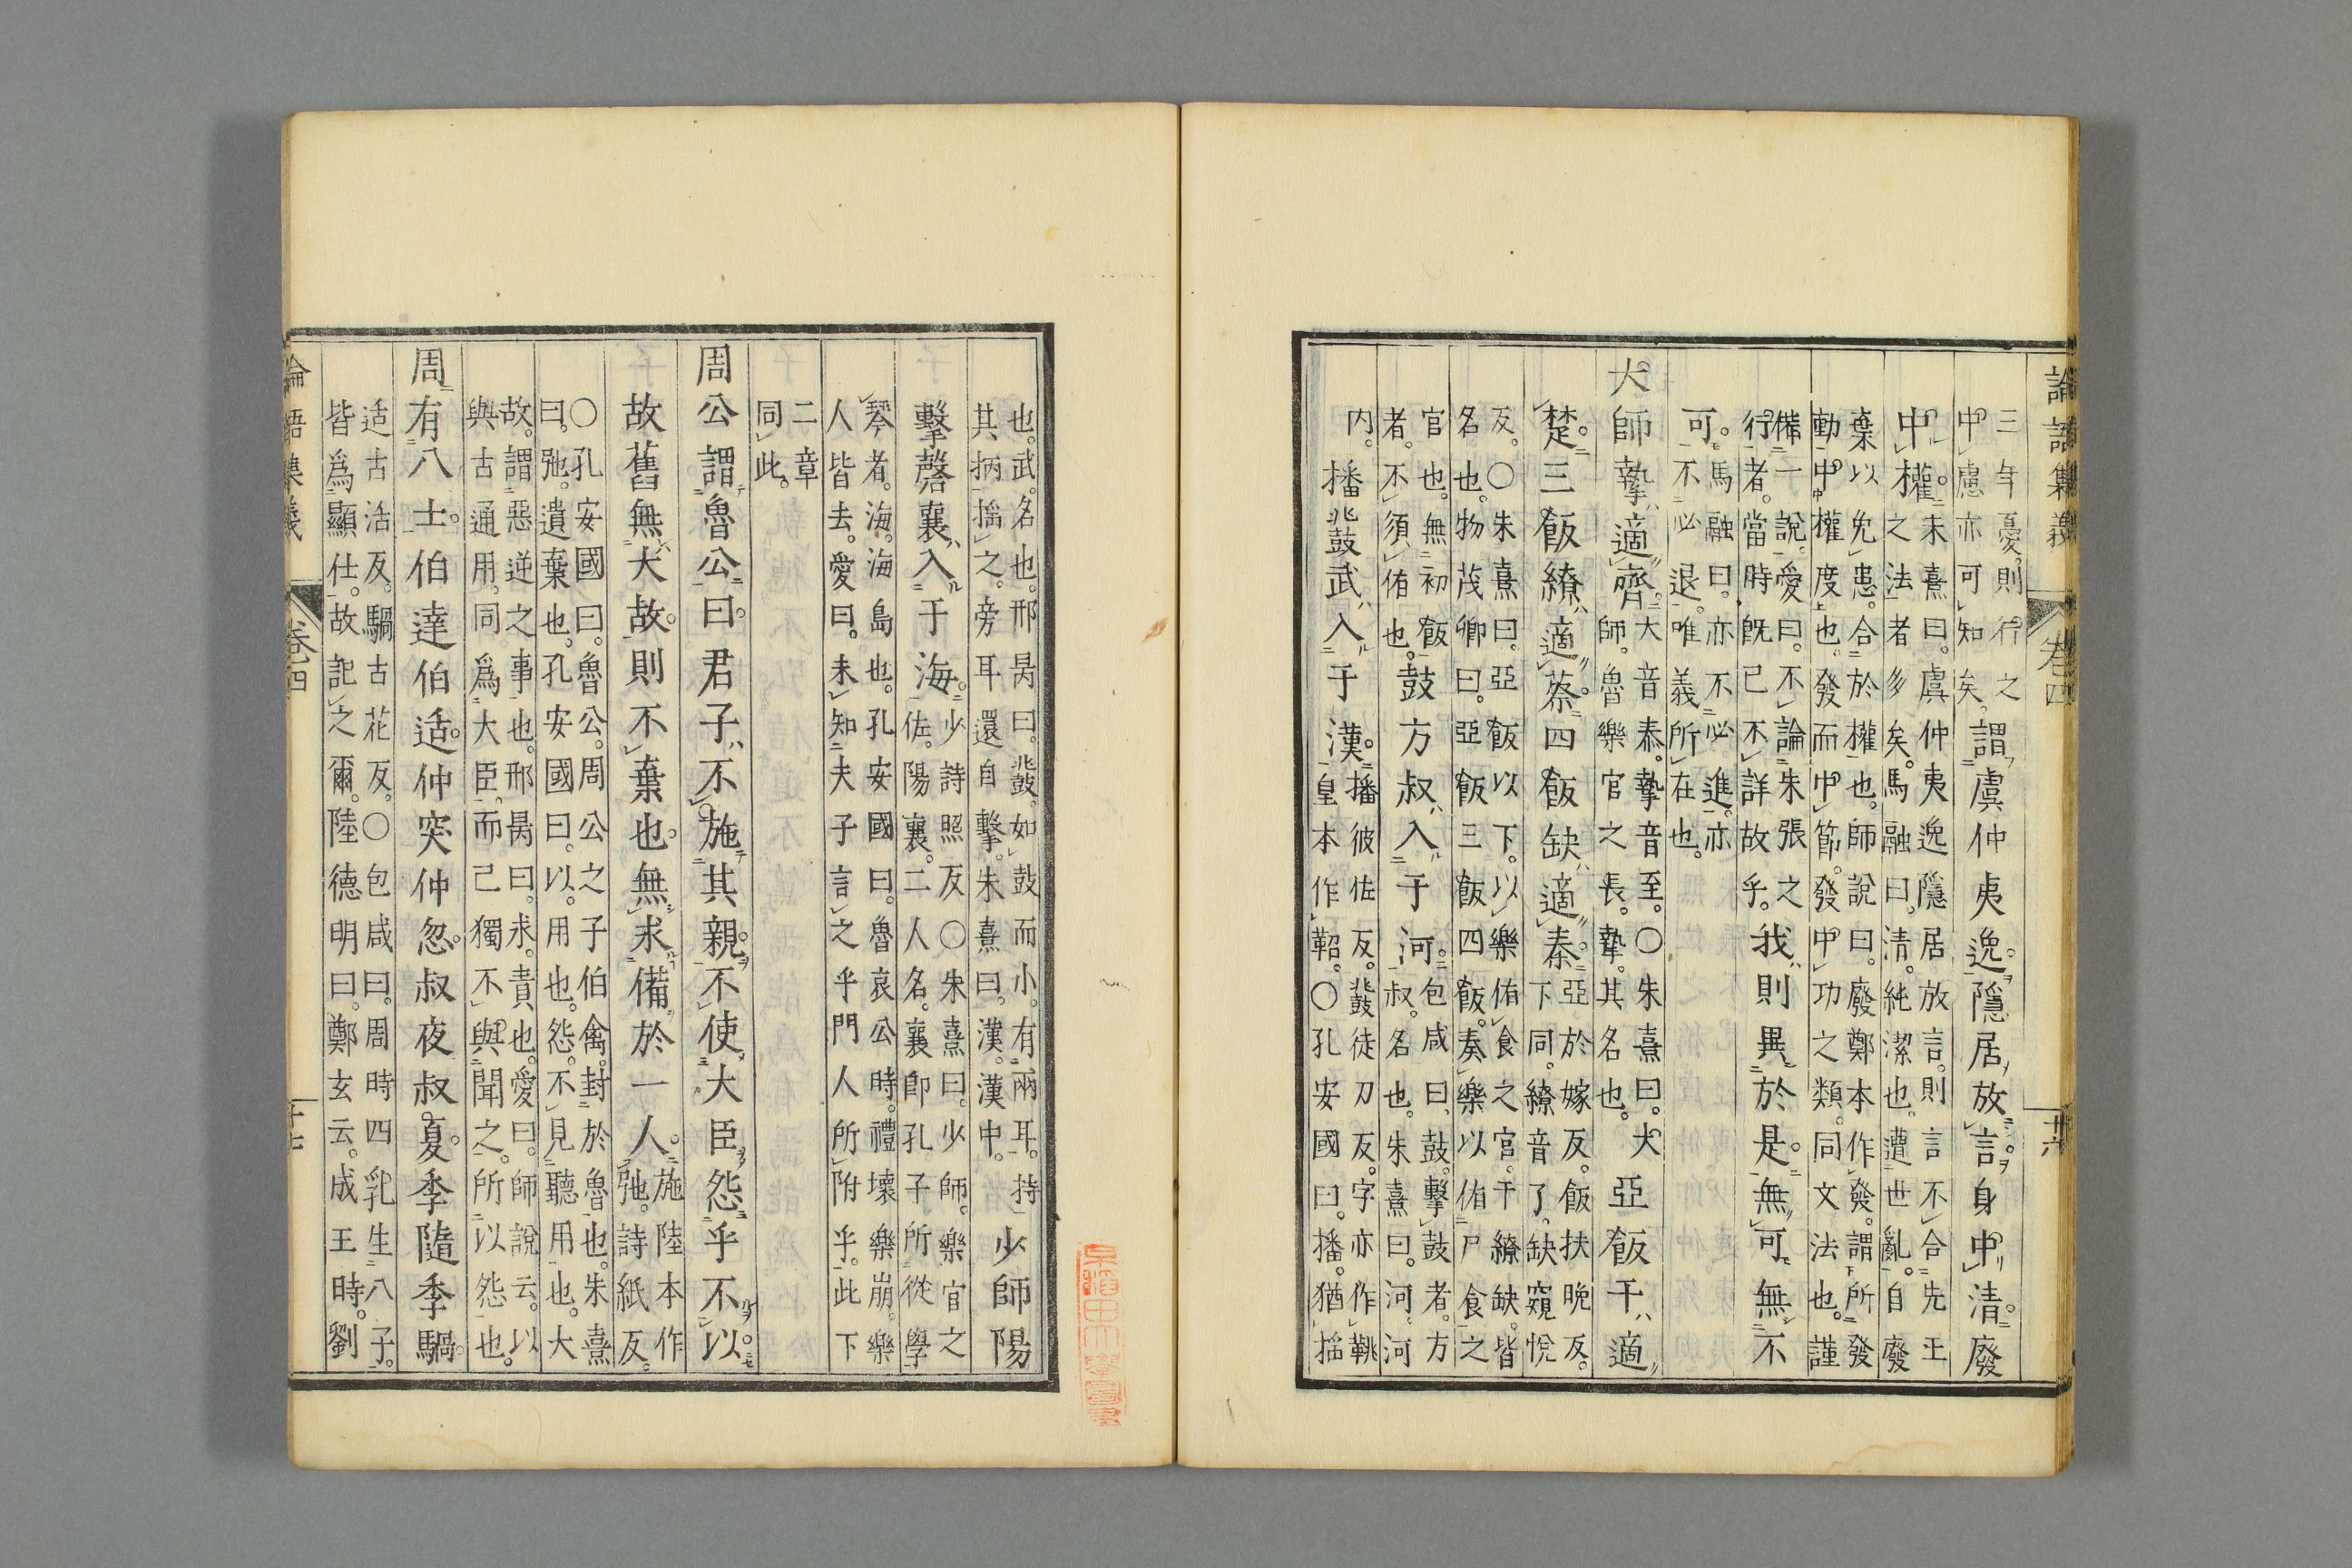 論語集義 卷四 十六
三年憂則行之中慮亦可知矣。謂虞仲夷逸。隱居放言。身中清。廢
中權。朱熹曰。虞仲夷逸隱居放言。則言不合先王之法者多矣。馬融曰。清。純潔也。遭世亂。自廢
棄以免患。合於權也。師說曰。廢鄭本作發。謂所發動中權度也。發而中節。發中功之類。同文法也。謹
備一說。愛曰。不論朱張之行者。當時既已不詳故乎。我則異於是。無可無不
可。馬融曰。亦不必進。亦不必退。唯義所在也。
大師摯適齊。大音泰。摯音至。○朱熹曰。大師。魯樂官之長。摯。其名也。亞飯干適
楚。三飯繚適蔡。四飯缺適秦。亞於嫁反。飯扶晚反。下同。繚音了。缺窺悅
反。○朱熹曰。亞飯以下。以樂侑食之官。干繚缺。皆名也。物茂卿曰。亞飯三飯四飯。奏樂以侑尸食之
官也。無初飯者。不須侑也。鼓方叔入于河。包咸曰。鼓。擊鼓者。方叔。名也。朱熹曰。河。河
内。播鼗武入于漢。播彼佐反。鼗徒刀反。字亦作鞉皇本作鞀。○孔安國曰。播。猶揺
也。武。名也。邢昺曰。鼗。如鼓而小。有兩耳。持其柄揺之。旁耳還自擊。朱熹曰。漢。漢中。少師陽
擊磬襄入于海。少詩照反○朱熹曰。少師。樂官之佐。陽襄。二人名。襄即孔子所從學
琴者。海。海島也。孔安國曰。魯哀公時。禮壞樂崩。樂人皆去。愛曰。未知夫子言之乎門人所附乎。此下
二章同此。
周公謂魯公曰。君子不施其親。不使大臣怨乎不以。
故舊無大故。則不棄也。無求備於一人。施陸本作弛。詩紙反。
○孔安國曰。魯公。周公之子伯禽。封於魯也。朱熹曰。弛。遺棄也。孔安國曰。以。用也。怨。不見聽用也。大
故。謂惡逆之事也。邢昺曰。求。責也。愛曰。師說云。以與古通用。同爲大臣。而己獨不與聞之。所以怨也。
周有八士。伯達伯适。仲突仲忽。叔夜叔夏。季隨季騧。
适古活反。騧古花反。○包咸曰。周時四乳生八子。皆爲顯仕。故記之爾。陸德明曰。鄭玄云。成王時。劉
論語集義 卷四 十七